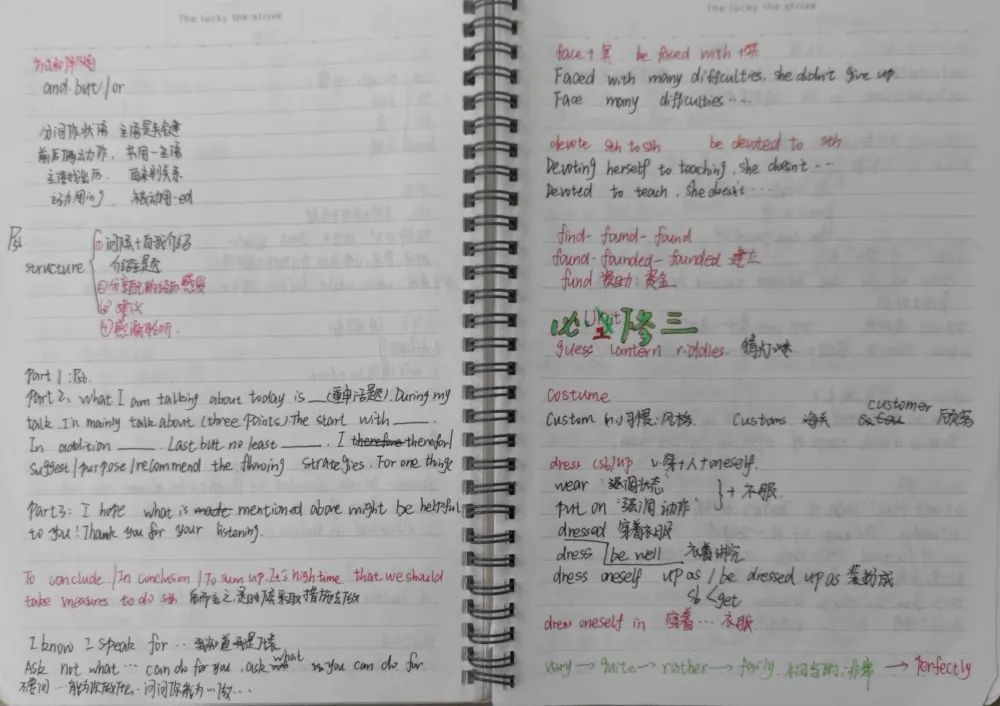 The lucky the strive
and. but / or
分词作状语, 主语是关键
前后两动作, 共用一主语
主语找出后, 再来判关系
主动用ing, 被动用-ed
structure
①问候+自我介绍
介绍主题
②分享配的经历感受
③建议
④感谢聆听.
Part 1:
Part 2: What I am talking about today is __(重申话题). During my
talk. I'm mainly talk about (three points). The start with ____.
In addition ____. Last but no least ____. I therefore therefore
suggest / purpose / recommend the flowing strategies. For one things
Part 3: I hope what is made mentioned above might be helpful
to you! Thank you for your listening.
To conclude / In conclusion / To sum up. It's high time that we should
take measures to do sth 采取措施去做
I know I speak for …
Ask not what … can do for you. ask what you can do for
不要问 … 能为你做什么. 问问你能为…做…
The lucky the strive
face + be faced with +
Faced with many difficulties. she didn't give up.
Face many difficulties....
devote sth to sth be devoted to sth
Devoting herself to teaching. she doesn't …
Devoted to teach. she doesn't …
find- found- found
found- founded- founded 建立
fund 资助; 资金
必修三
Unit 1
guess lantern riddles. 猜灯谜.
costume
custom n.习惯; 风格. customs 海关 customer 顾客
dress (sb) up v. 穿+人+oneself.
wear 强调状态
put on 强调动作 } + 衣服
dressed 穿着衣服
dress be well 衣着讲究
dress oneself up as / be dressed up as 装扮成
sb < get
dress oneself in 穿着… 衣服.
very → quite → rather → fairly. 相当的; 非常 → perfectly